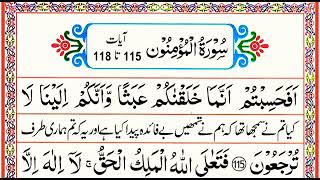 سُوْرَةُ الْمُؤْمِنُوْن
آیات
115 تا 118
اَفَحَسِبْتُمْ اَنَّمَا خَلَقْنٰكُمْ عَبَثًا وَّاَنَّكُمْ اِلَيْنَا لَا
کیا تم نے سمجھا تھا کہ ہم نے تمھیں بے فائدہ پیدا کیا ہے اور یہ کہ تم ہماری طرف
تُرْجَعُوْنَ 115 فَتَعٰلَى اللّٰهُ الْمَلِكُ الْحَقُّ ۚ لَاۤ اِلٰهَ اِلَّا